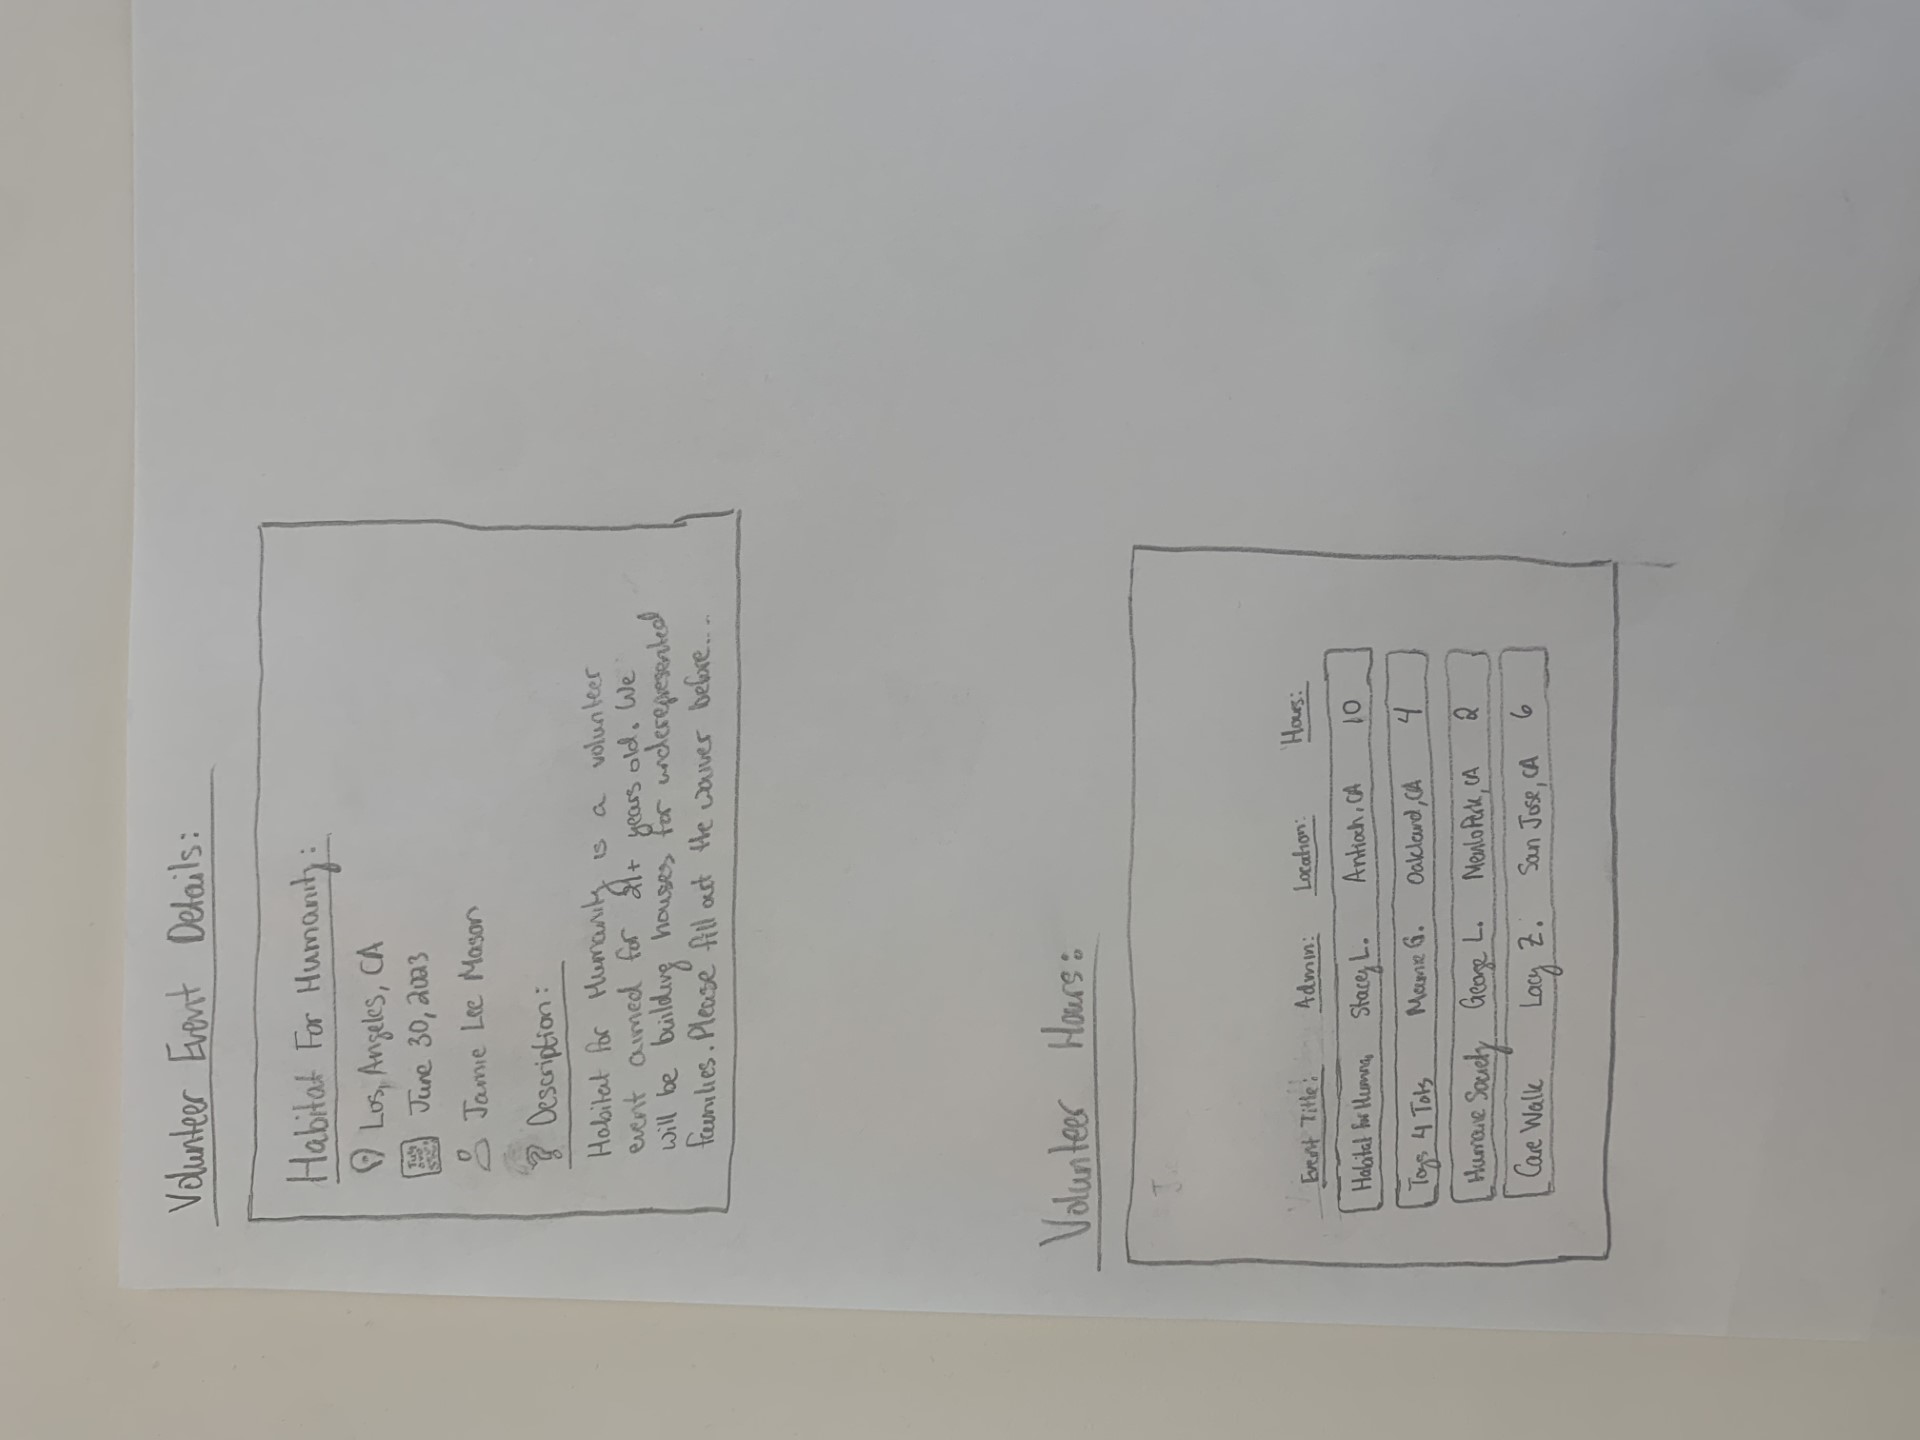 Volunteer Event Details:
Habitat For Humanity:
Los, Angeles, CA
June 30, 2023
Jamie Lee Mason
Description:
Habitat for Humanity is a volunteer
event aimed for 21+ years old. We
will be building houses for underrepresented
families. Please fill out the waiver before...
Volunteer Hours:
Event Title: Admin: Location: Hours:
Habitat for Humana, Stacey L. Antioch, CA 10
Toys 4 Tots G. Oakland, CA 4
Humane Society George L. Menlo Park, CA 2
Care Walk Lacy Z. San Jose, CA 6